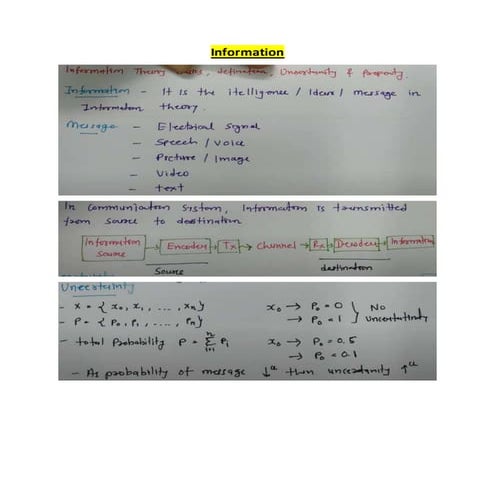 Information
Information Theory units, definition, Uncertainty & Property.
Information - It is the itelligence / Ideas / message in
Information theory.
Message - Electrical signal
- Speech / Voice
- Picture / Image
- Video
- text
In communication system, Information is transmitted
from source to destination
Information Source → Encoder → Tx → Channel → Rx → Decoder → Information
Source destination
Uncertainty
- X = { x0, x1, ...., xn} x0 → P0 = 0 } No
- P = { P0, P1, ...., Pn} → P0 = 1 } Uncertainty
- total Probability P = Σ Pi x0 → P0 = 0.5
→ P0 = 0.1
- As probability of message ↓ then uncertainty ↑